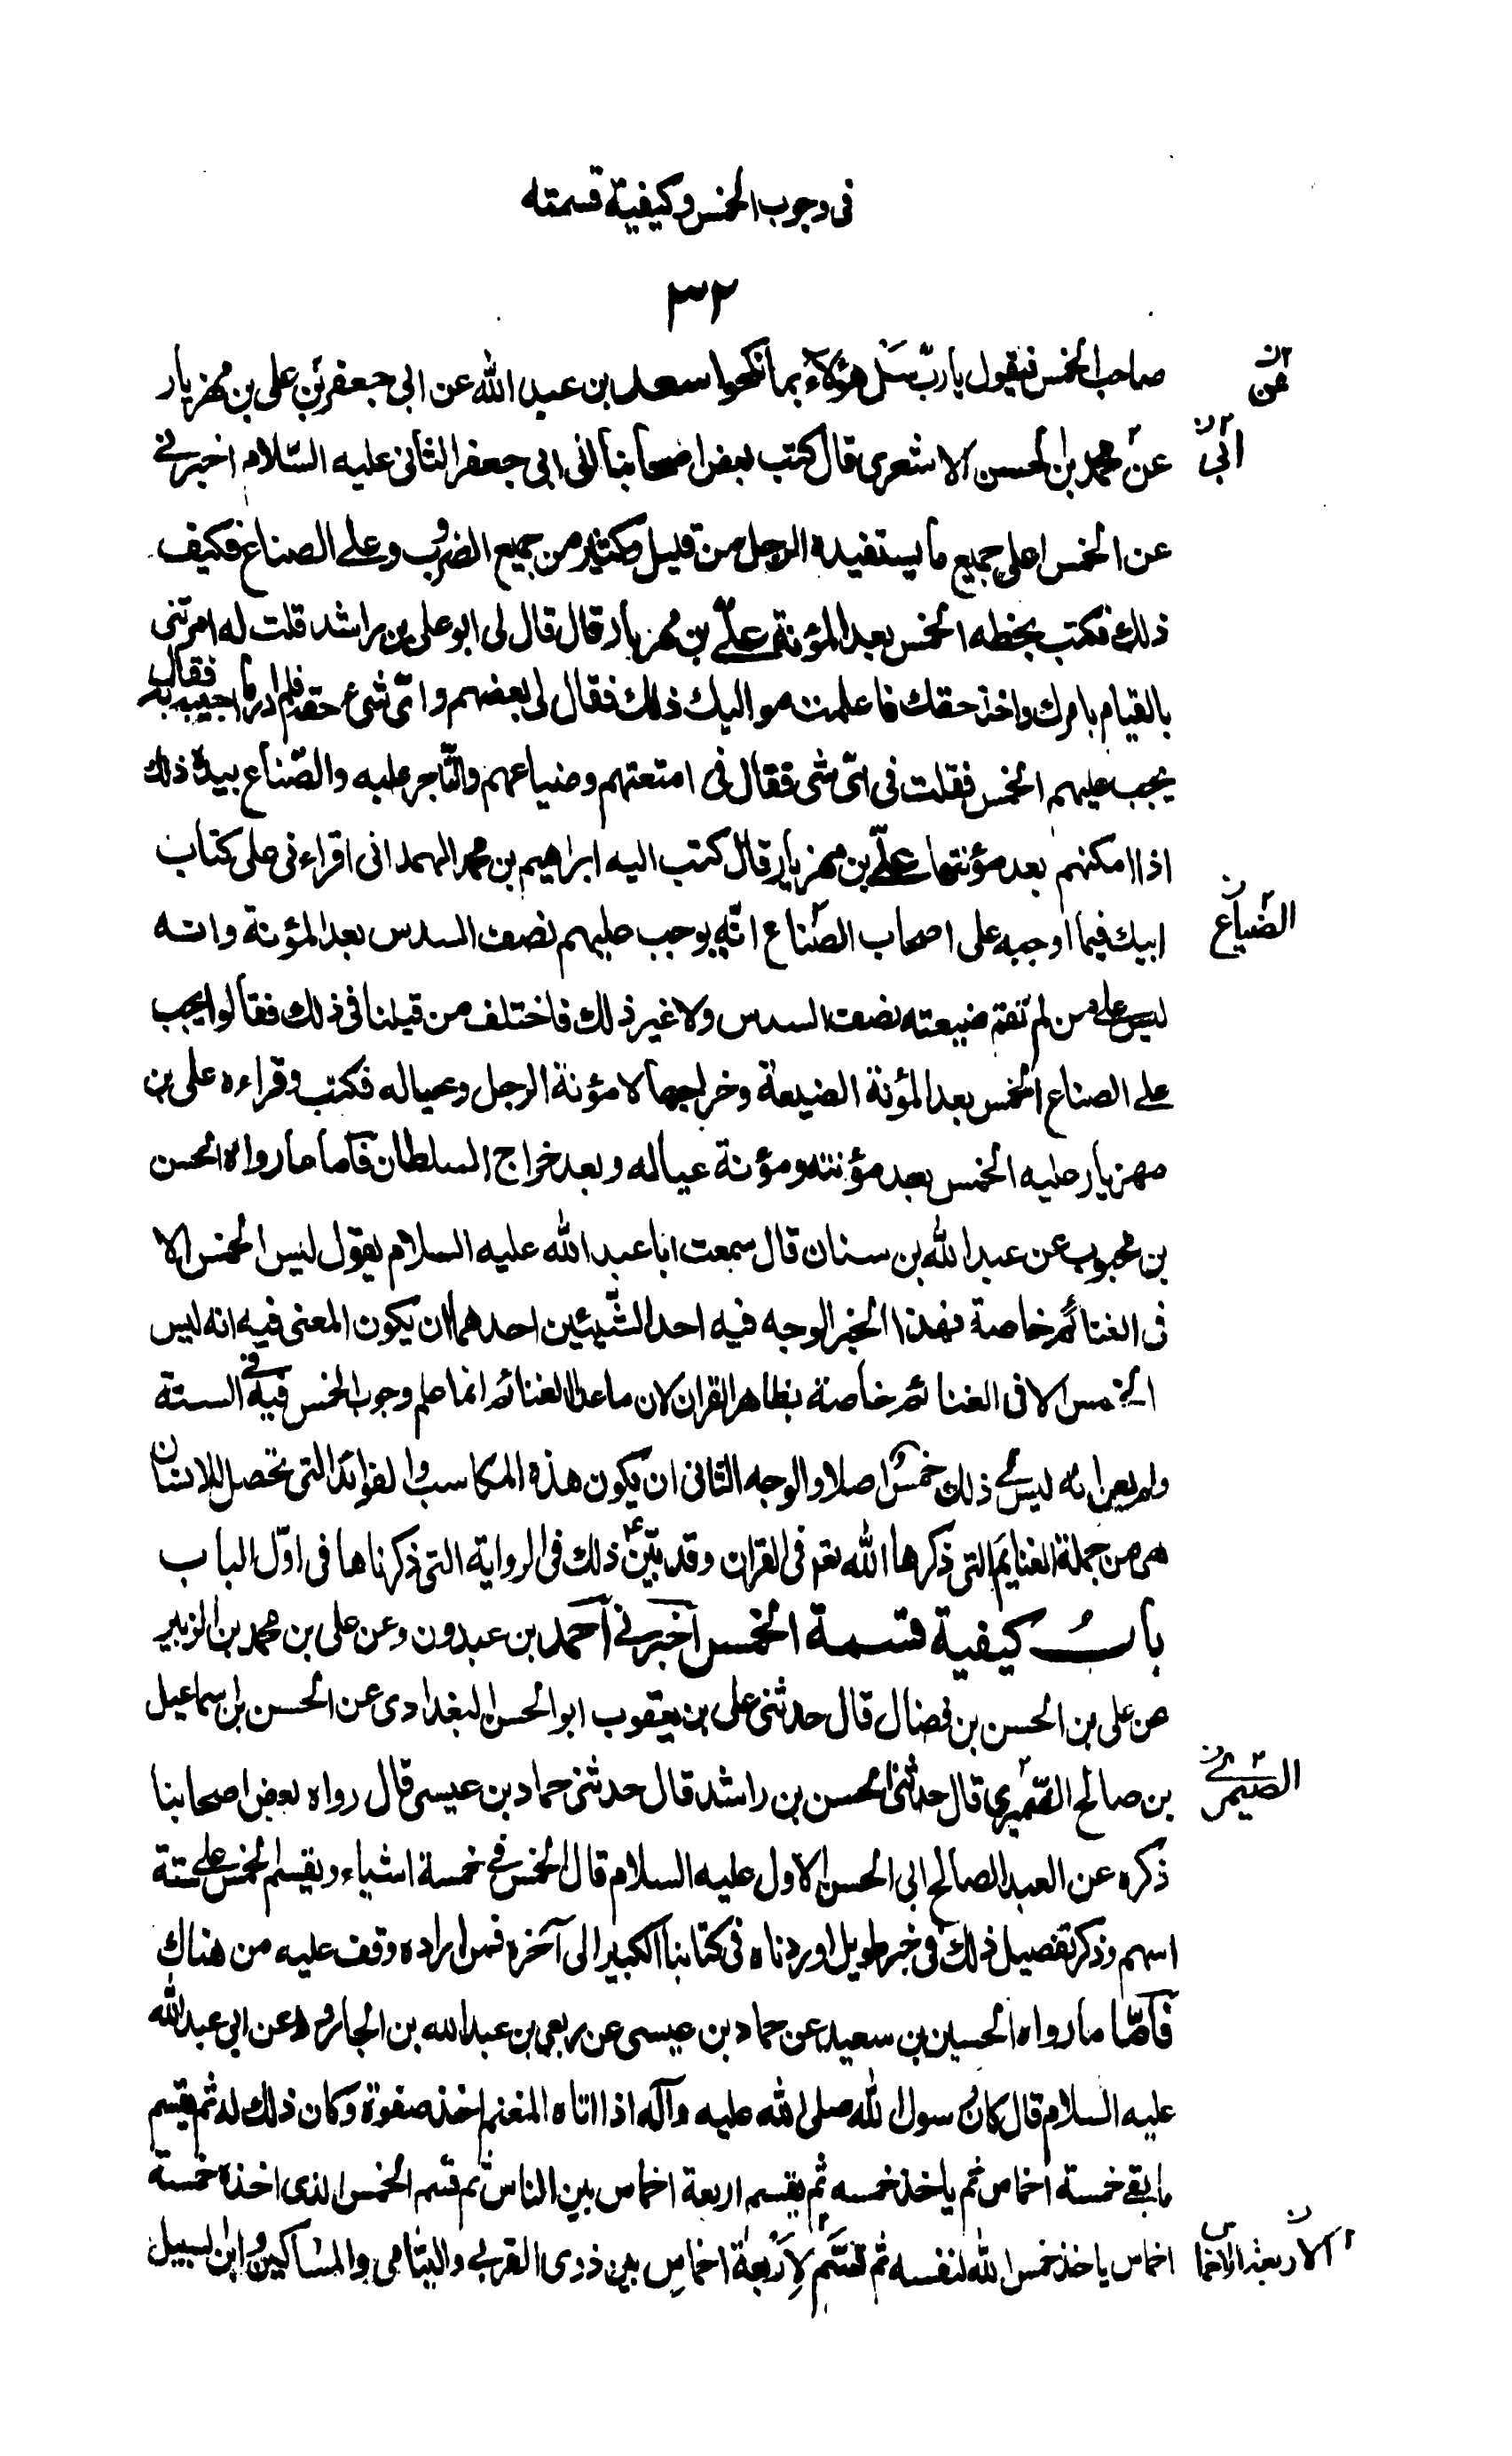 فى وجوب الخمس وكيفية قسمته
٣٢
صاحب الخمس فيقول يا رب سل هؤلاء بما نكحوا سعد بن عبد الله عن ابى جعفر بن على بن مهزيار
عن
عن محمد بن الحسن الاشعرى قال كتب بعض اصحابنا الى ابى جعفر الثانى عليه السّلام اخبرنى
ابى
عن الخمس اعلى جميع ما يستفيده الرجل من قليل وكثير من جميع الضروب وعلى الصناع فكيف
ذلك فكتب بخطه الخمس بعد المؤنة علىّ بن مهزيار قال قال لى ابو على بن راشد قلت له امرتنى
بالقيام بامرك واخذ حقك فاعلمت مواليك ذلك فقال لى بعضهم واىّ شىء حقه فلم ادر ما اجيبه به فقال
يجب عليهم الخمس فقلت فى اىّ شى فقال فى امتعتهم وضياعهم والتّاجر عليه والصّناع بيده ذلك
اذا امكنهم بعد مؤنتها علىّ بن مهزيار قال كتب اليه ابراهيم بن محمد الهمدانى اقراءنى على كتاب
ابيك فيما اوجبه على اصحاب الصّناع انّه يوجب عليهم نصف السدس بعد المؤنة وانه
الضياع
ليس على من لم تقم ضيعته نصف السدس ولا غير ذلك فاختلف من قبلنا فى ذلك فقالوا يجب
على الصناع الخمس بعد المؤنة الضيعة وخراجها لا مؤنة الرجل وعياله فكتب وقراءه على بن
مهزيار عليه الخمس بعد مؤنته ومؤنة عياله وبعد خراج السلطان فاما ما رواه الحسن
بن محبوب عن عبد الله بن سنان قال سمعت ابا عبد الله عليه السلام يقول ليس الخمس الا
فى الغنائم خاصة فهذا الخبر الوجه فيه احد الشّيئين احدهما ان يكون المعنى فيه انه ليس
الخمس الا فى الغنائم خاصة بظاهر القران لان ما عدا الغنائم انما علم وجوب الخمس فيه فى السنة
ولم يعن انه ليس فى ذلك خمس اصلا والوجه الثانى ان يكون هذه المكاسب والفوائد التى تحصل للانسان
هى من جملة الغنايم التى ذكرها الله تعم فى القران وقد بيّن ذلك فى الرواية التى ذكرناها فى اوّل الباب
باب كيفية قسمة الخمس اخبرنى احمد بن عبدون وعن على بن محمد بن الزبير
عن على بن الحسن بن فضال قال حدثنى على بن يعقوب ابو الحسن البغدادى عن الحسن بن اسماعيل
بن صالح الصّيمرى قال حدثنى الحسن بن راشد قال حدثنى حماد بن عيسى قال رواه بعض اصحابنا
الصّيمرى
ذكره عن العبد الصالح ابى الحسن الاول عليه السلام قال الخمس فى خمسة اشياء ويقسم الخمس على ستة
اسهم وذكر تفصيل ذلك فى خبر طويل اوردناه فى كتابنا الكبير الى آخره فمن اراده وقف عليه من هناك
فامّا ما رواه الحسين بن سعيد عن حماد بن عيسى عن ربعى بن عبد الله بن الجارود عن ابى عبد الله
عليه السلام قال كان رسول الله صلى الله عليه وآله اذا اتاه المغنم اخذ صفوة وكان ذلك له ثم يقسم
ما بقى خمسة اخماس ثم ياخذ خمسه ثم يقسم اربعة اخماس بين الناس ثم قسم الخمس الذى اخذه خمسة
اخماس ياخذ خمس الله لنفسه ثم تقسّم لاربعة اخماس بين ذوى القربى واليتامى والمساكين وابن السبيل
الاربعة الاخماس